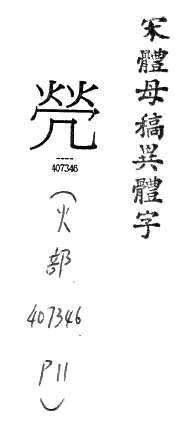 宋體母稿異體字
㷀
407346
(火部 407346 P11)